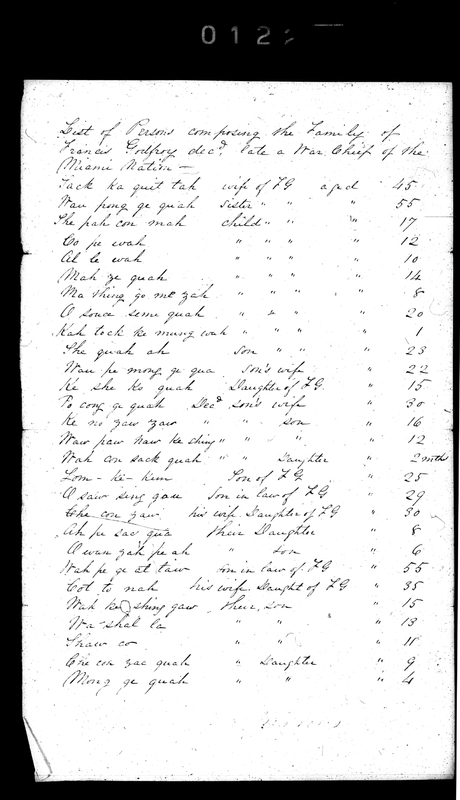 012
List of Persons composing the Family of
Francis Godfroy decd. late a War Chief of the
Miami Nation —
Tack ka quit tah wife of FG aged 45
Wau pong ge quah sister " " " 55
She pah con mah child " " " 17
Co pe wah " " " " 12
Al le wah " " " " 10
Mah ze quah " " " " 14
Ma shing go me zah " " " " 8
O souca seme quah " " " " 20
Kah tock ke mung wah " " " " 1
She quah ah son " " " 23
Wau pe mong ge qua son's wife " 22
Ke she ko quah Daughter of FG " 15
Po cong ge quah Decd son's wife " 30
Ke no zaw zaw " " son " 16
Waw paw naw ke ching " " " " 12
Wah con sack quah " " Daughter " 2 mths
Lom-ke-kum Son of FG " 25
O saw sing gau Son in law of FG " 29
che con zaw his wife Daughter of FG " 30
Ah pe saw qua their Daughter " 8
O wan zah pe ah " son " 6
Wah pe ge et taw son in law of FG " 55
Cot to nah his wife Daught of FG " 35
Wah ke shing gaw their son " 15
Wa-shal la " " " 13
Shaw co " " " 11
Che con zac quah " Daughter " 9
Mong ge quah " " " 4